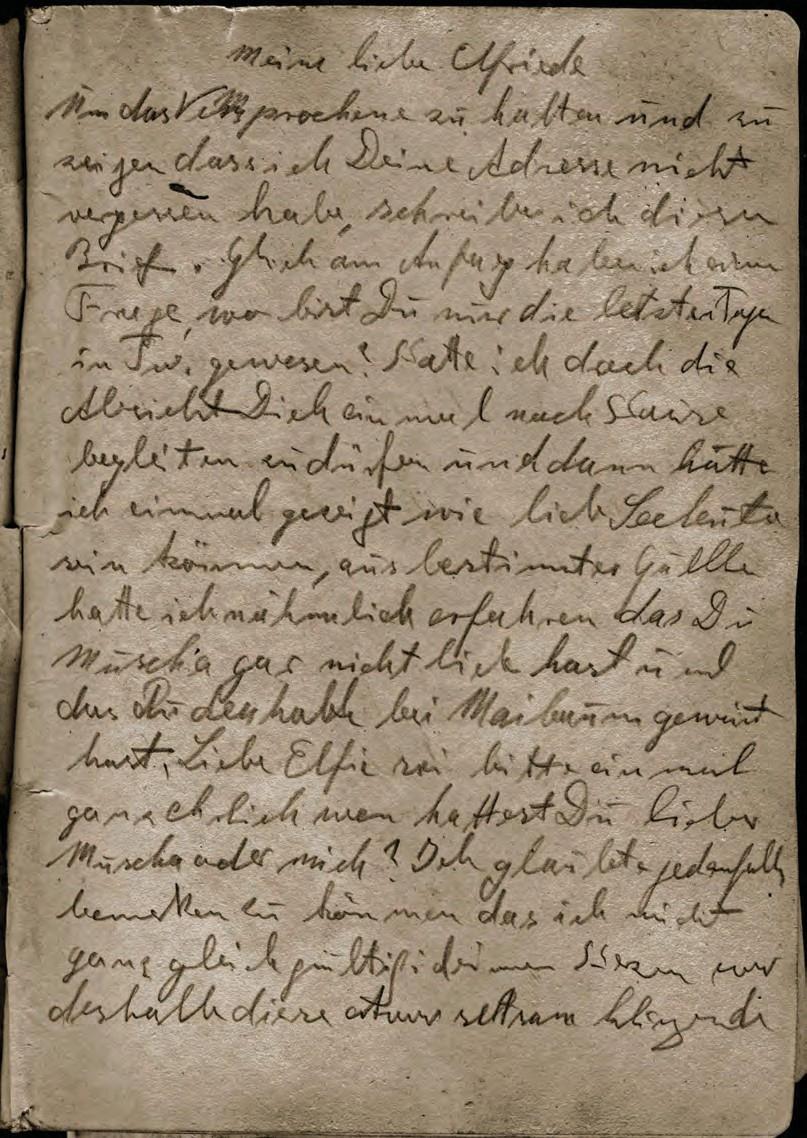 Meine liebe Elfriede
Um das Versprochene zu halten und zu
zeigen dass ich Deine Adresse nicht
vergessen habe, schreibe ich diesen
Brief. Gleich am Anfang habe ich eine
Frage, wo bist Du nur die letzten Tage
in Tw. gewesen? Hatte ich doch die
Absicht Dich einmal nach Hause
begleiten zu dürfen und dann hätte
ich einmal gezeigt wie lieb Seeleute
sein können, aus bestimmter Quelle
hatte ich nähmlich erfahren das Du
Muscha gar nicht lieb hast und
das Du deshalb bei Maibaum geweint
hast. Liebe Elfie sei bitte einmal
ganz ehrlich wen hattest Du lieber
Muscha oder mich? Ich glaubte jedenfalls
bemerken zu können das ich nicht
ganz gleichgültig deinem Herzen war
deshalb diese etwas seltsam klingende